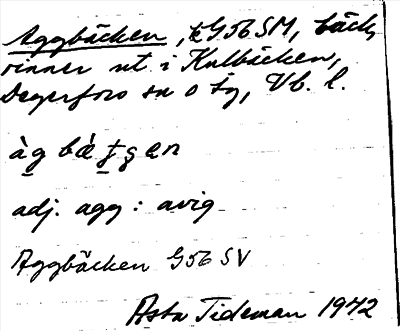 Aggbäcken, G56 SM, bäck,
rinner ut i Kulbäcken,
Degerfors sn o tg, Vb. l.
adj. agg: avig
Aggbäcken G56 SV
Asta Tideman 1942